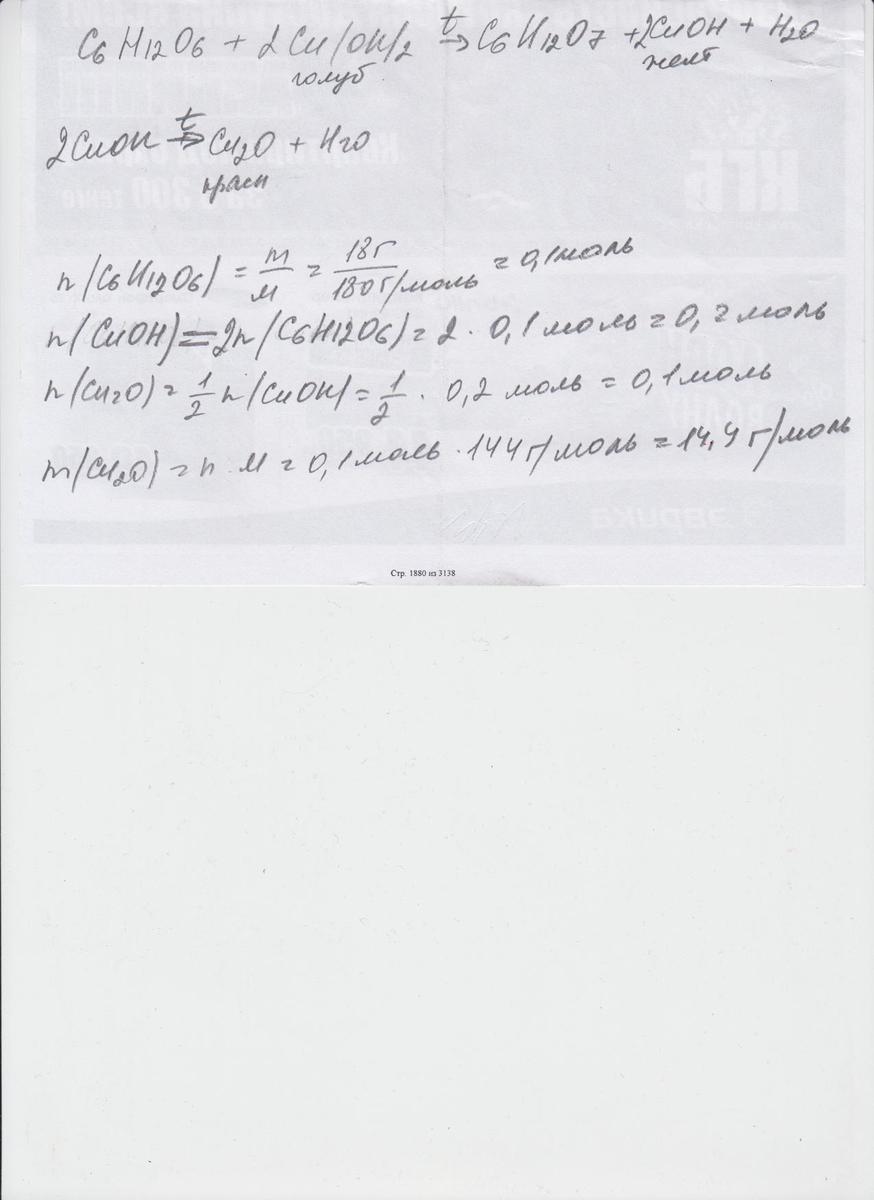 C6H12O6 + 2Cu(OH)2 t→ C6H12O7 + 2CuOH + H2O
голуб желт
2CuOH t→ Cu2O + H2O
красн
n(C6H12O6) = m/M = 18г/180г/моль = 0,1моль
n(CuOH) = 2n(C6H12O6) = 2 · 0,1моль = 0,2моль
n(Cu2O) = 1/2 n(CuOH) = 1/2 · 0,2 моль = 0,1моль
m(Cu2O) = n · M = 0,1моль · 144г/моль = 14,4 г/моль
Стр. 1880 из 3138